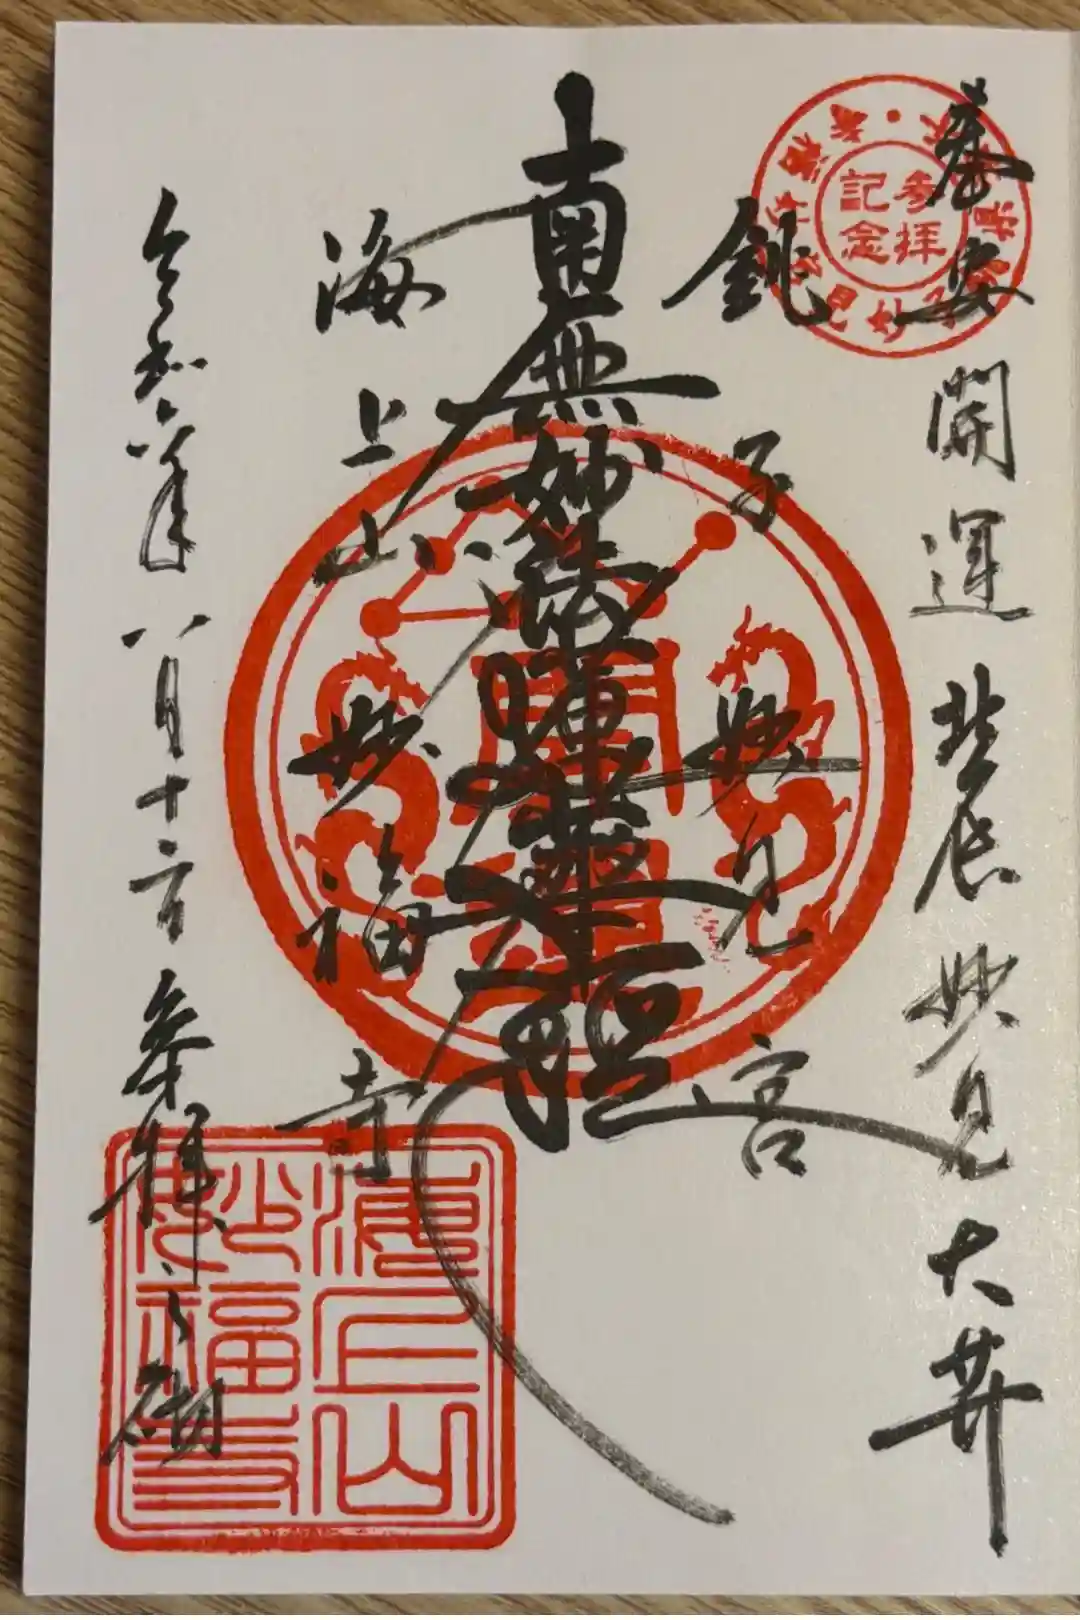 奉安開運北辰妙見大𦬇
銚子妙見宮
南無妙法蓮華経
海上山妙福寺
令和六年八月十二日参拝之砌
参拝
記念
開運
海上山
妙福寺